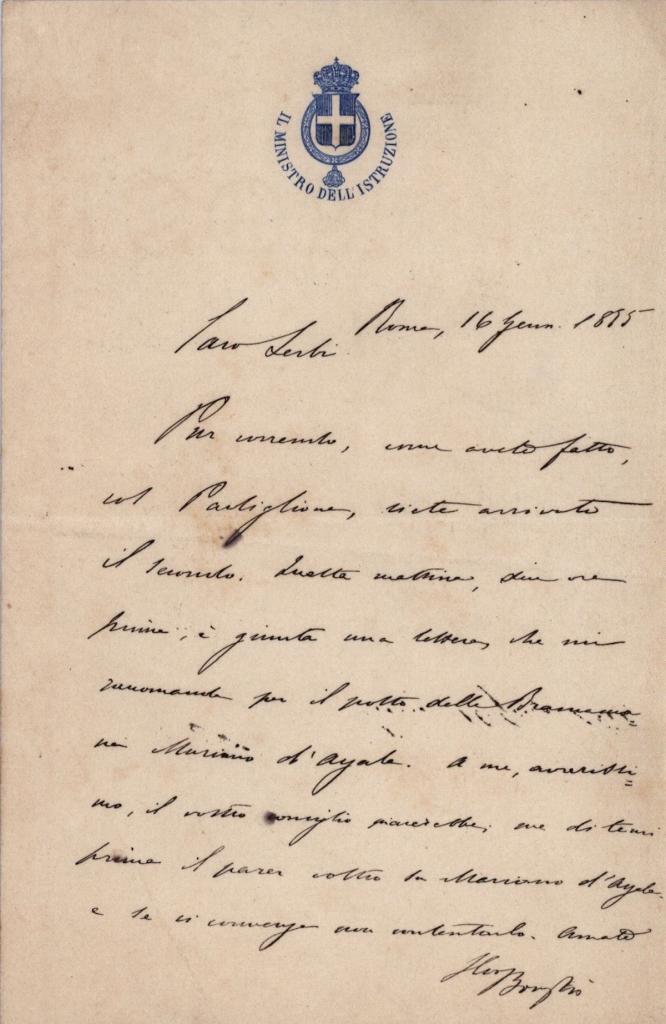 IL MINISTRO DELL'ISTRUZIONE
Roma, 16 Genn. 1875
Caro
Pur correndo, come avete fatto,
col Castiglione, siete arrivato
il secondo. Questa mattina, due ore
prima, è giunta una lettera, che mi
raccomanda per il posto della
Mariano d'Ayala. A me, avversissi=
mo, il vostro consiglio piacerebbe; ma ditemi
prima il parer vostro su Mariano d'Ayala
e se vi convenga non contentarlo. Amate
Bonghi